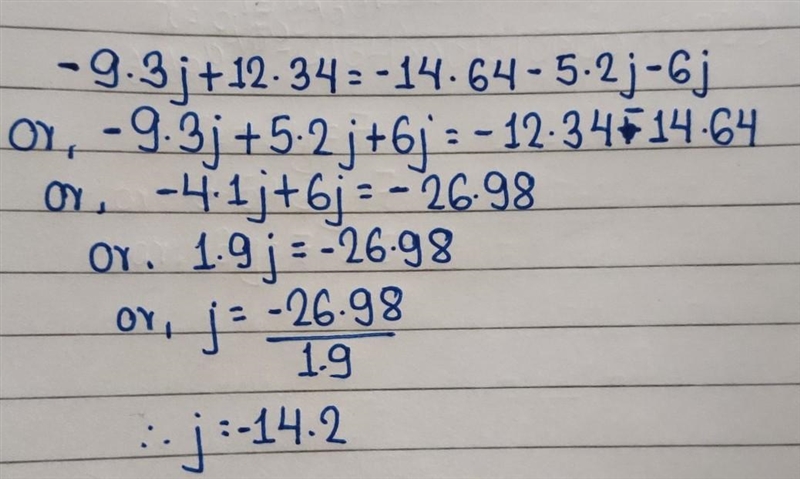 -9.3j+12.34=-14.64-5.2j-6j
or, -9.3j+5.2j+6j=-12.34-14.64
or, -4.1j+6j=-26.98
or. 1.9j=-26.98
or, j=-26.98
1.9
∴ j=-14.2